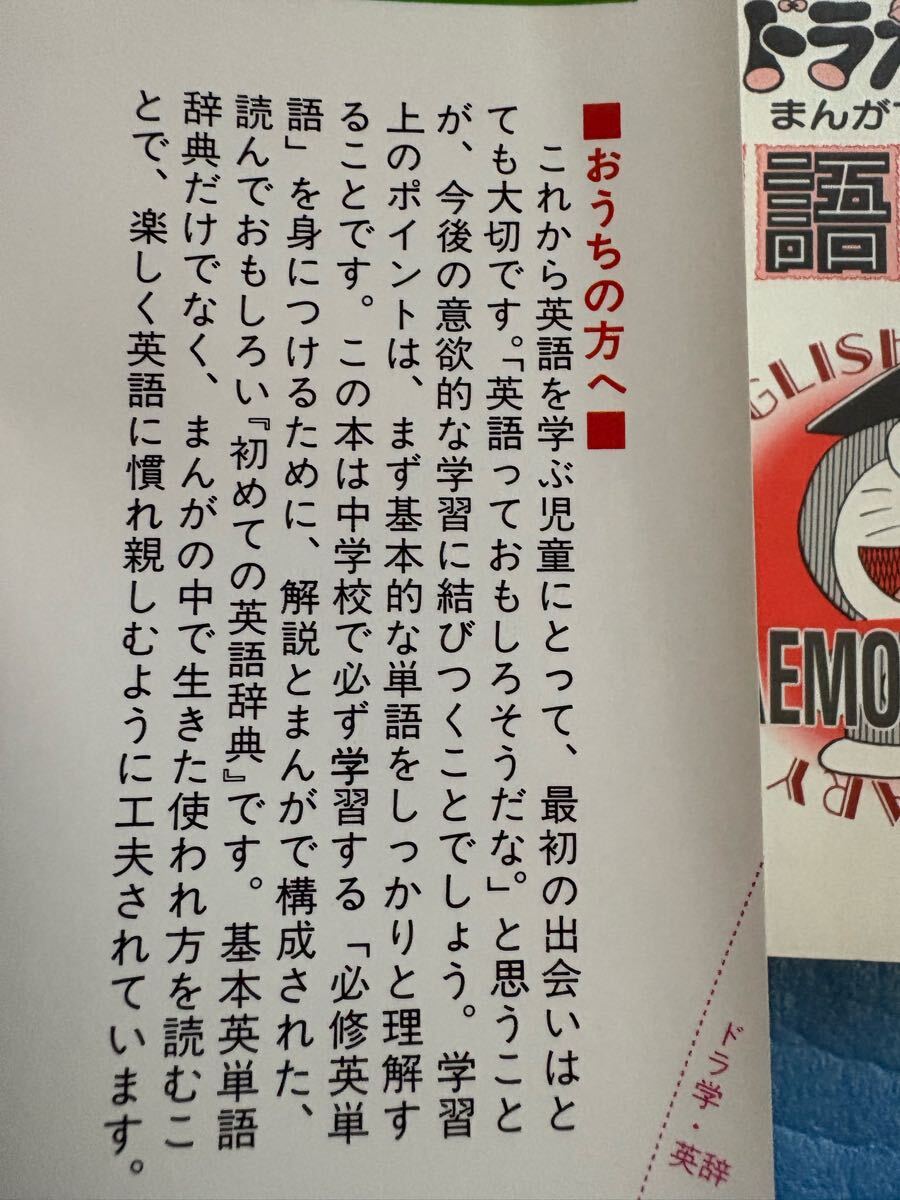 ■おうちの方へ■
これから英語を学ぶ児童にとって、最初の出会いはと
ても大切です。「英語っておもしろそうだな。」と思うこと
が、今後の意欲的な学習に結びつくことでしょう。学習
上のポイントは、まず基本的な単語をしっかりと理解す
ることです。この本は中学校で必ず学習する「必修英単
語」を身につけるために、解説とまんがで構成された、
読んでおもしろい『初めての英語辞典』です。基本英単語
辞典だけでなく、まんがの中で生きた使われ方を読むこ
とで、楽しく英語に慣れ親しむように工夫されています。
ドラ学・英辞
ドラ
まんがで
語
GLISH
AEMO
ARY